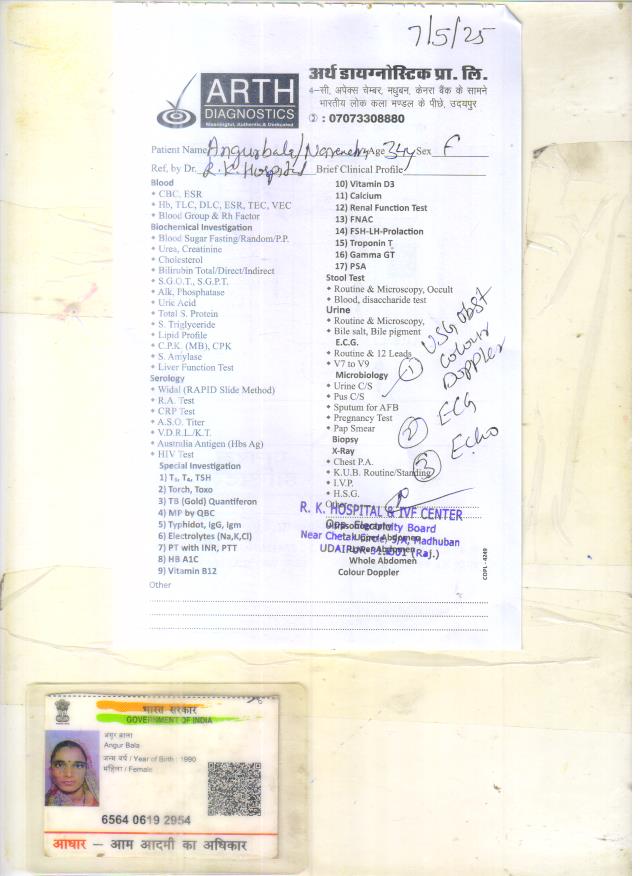 7/5/25
ARTH
DIAGNOSTICS
Meaningful, Authentic & Dedicated
अर्थ डायग्नोस्टिक प्रा. लि.
4–सी, अपेक्स चेम्बर, मधुबन, केनरा बैंक के सामने
भारतीय लोक कला मण्डल के पीछे, उदयपुर
: 07073308880
Patient Name Angurbala/ Age 34y Sex F
Ref, by Dr. R.K. Hospital Brief Clinical Profile
Blood
CBC, ESR
Hb, TLC, DLC, ESR, TEC, VEC
Blood Group & Rh Factor
Biochemical Investigation
Blood Sugar Fasting/Random/P.P.
Urea, Creatinine
Cholesterol
Bilirubin Total/Direct/Indirect
S.G.O.T., S.G.P.T.
Alk, Phosphatase
Uric Acid
Total S. Protein
S. Triglyceride
Lipid Profile
C.P.K. (MB), CPK
S. Amylase
Liver Function Test
Serology
Widal (RAPID Slide Method)
R.A. Test
CRP Test
A.S.O. Titer
V.D.R.L./K.T.
Australia Antigen (Hbs Ag)
HIV Test
Special Investigation
1) T₃, T₄, TSH
2) Torch, Toxo
3) TB (Gold) Quantiferon
4) MP by QBC
5) Typhidot, IgG, Igm
6) Electrolytes (Na,K,Cl)
7) PT with INR, PTT
8) HB A1C
9) Vitamin B12
Other
10) Vitamin D3
11) Calcium
12) Renal Function Test
13) FNAC
14) FSH-LH-Prolaction
15) Troponin T
16) Gamma GT
17) PSA
Stool Test
Routine & Microscopy, Occult
Blood, disaccharide test
Urine
Routine & Microscopy,
Bile salt, Bile pigment
E.C.G.
Routine & 12 Leads
V7 to V9
Microbiology
Urine C/S
Pus C/S
Sputum for AFB
Pregnancy Test
Pap Smear
Biopsy
X-Ray
Chest P.A.
K.U.B. Routine/Standing
I.V.P.
H.S.G.
Other
1 USG Obst
Colour
Doppler
2 ECG
3 Echo
R. K. HOSPITAL & IVF CENTER
Opp. Electricity Board
Near Chetak Circle, 5/A, Madhuban
UDAIPUR-313001 (Raj.)
Upper Abdomen
Lower Abdomen
Whole Abdomen
Colour Doppler
COPL - 4249
भारत सरकार
GOVERNMENT OF INDIA
अंगुर बाला
Angur Bala
जन्म वर्ष / Year of Birth : 1990
महिला / Female
6564 0619 2954
आधार – आम आदमी का अधिकार